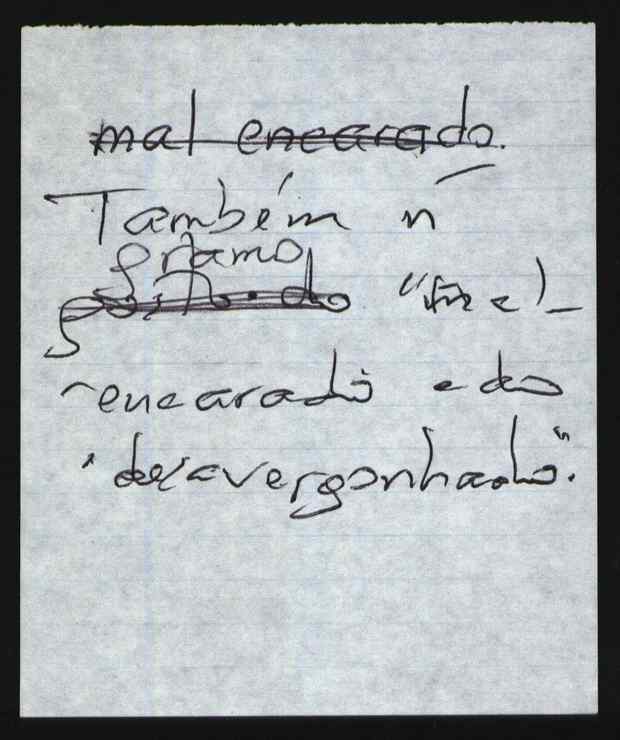 mal encarado.
Também ñ
gramo
gosto do "mal-
-encarado" e do
"desavergonhado".